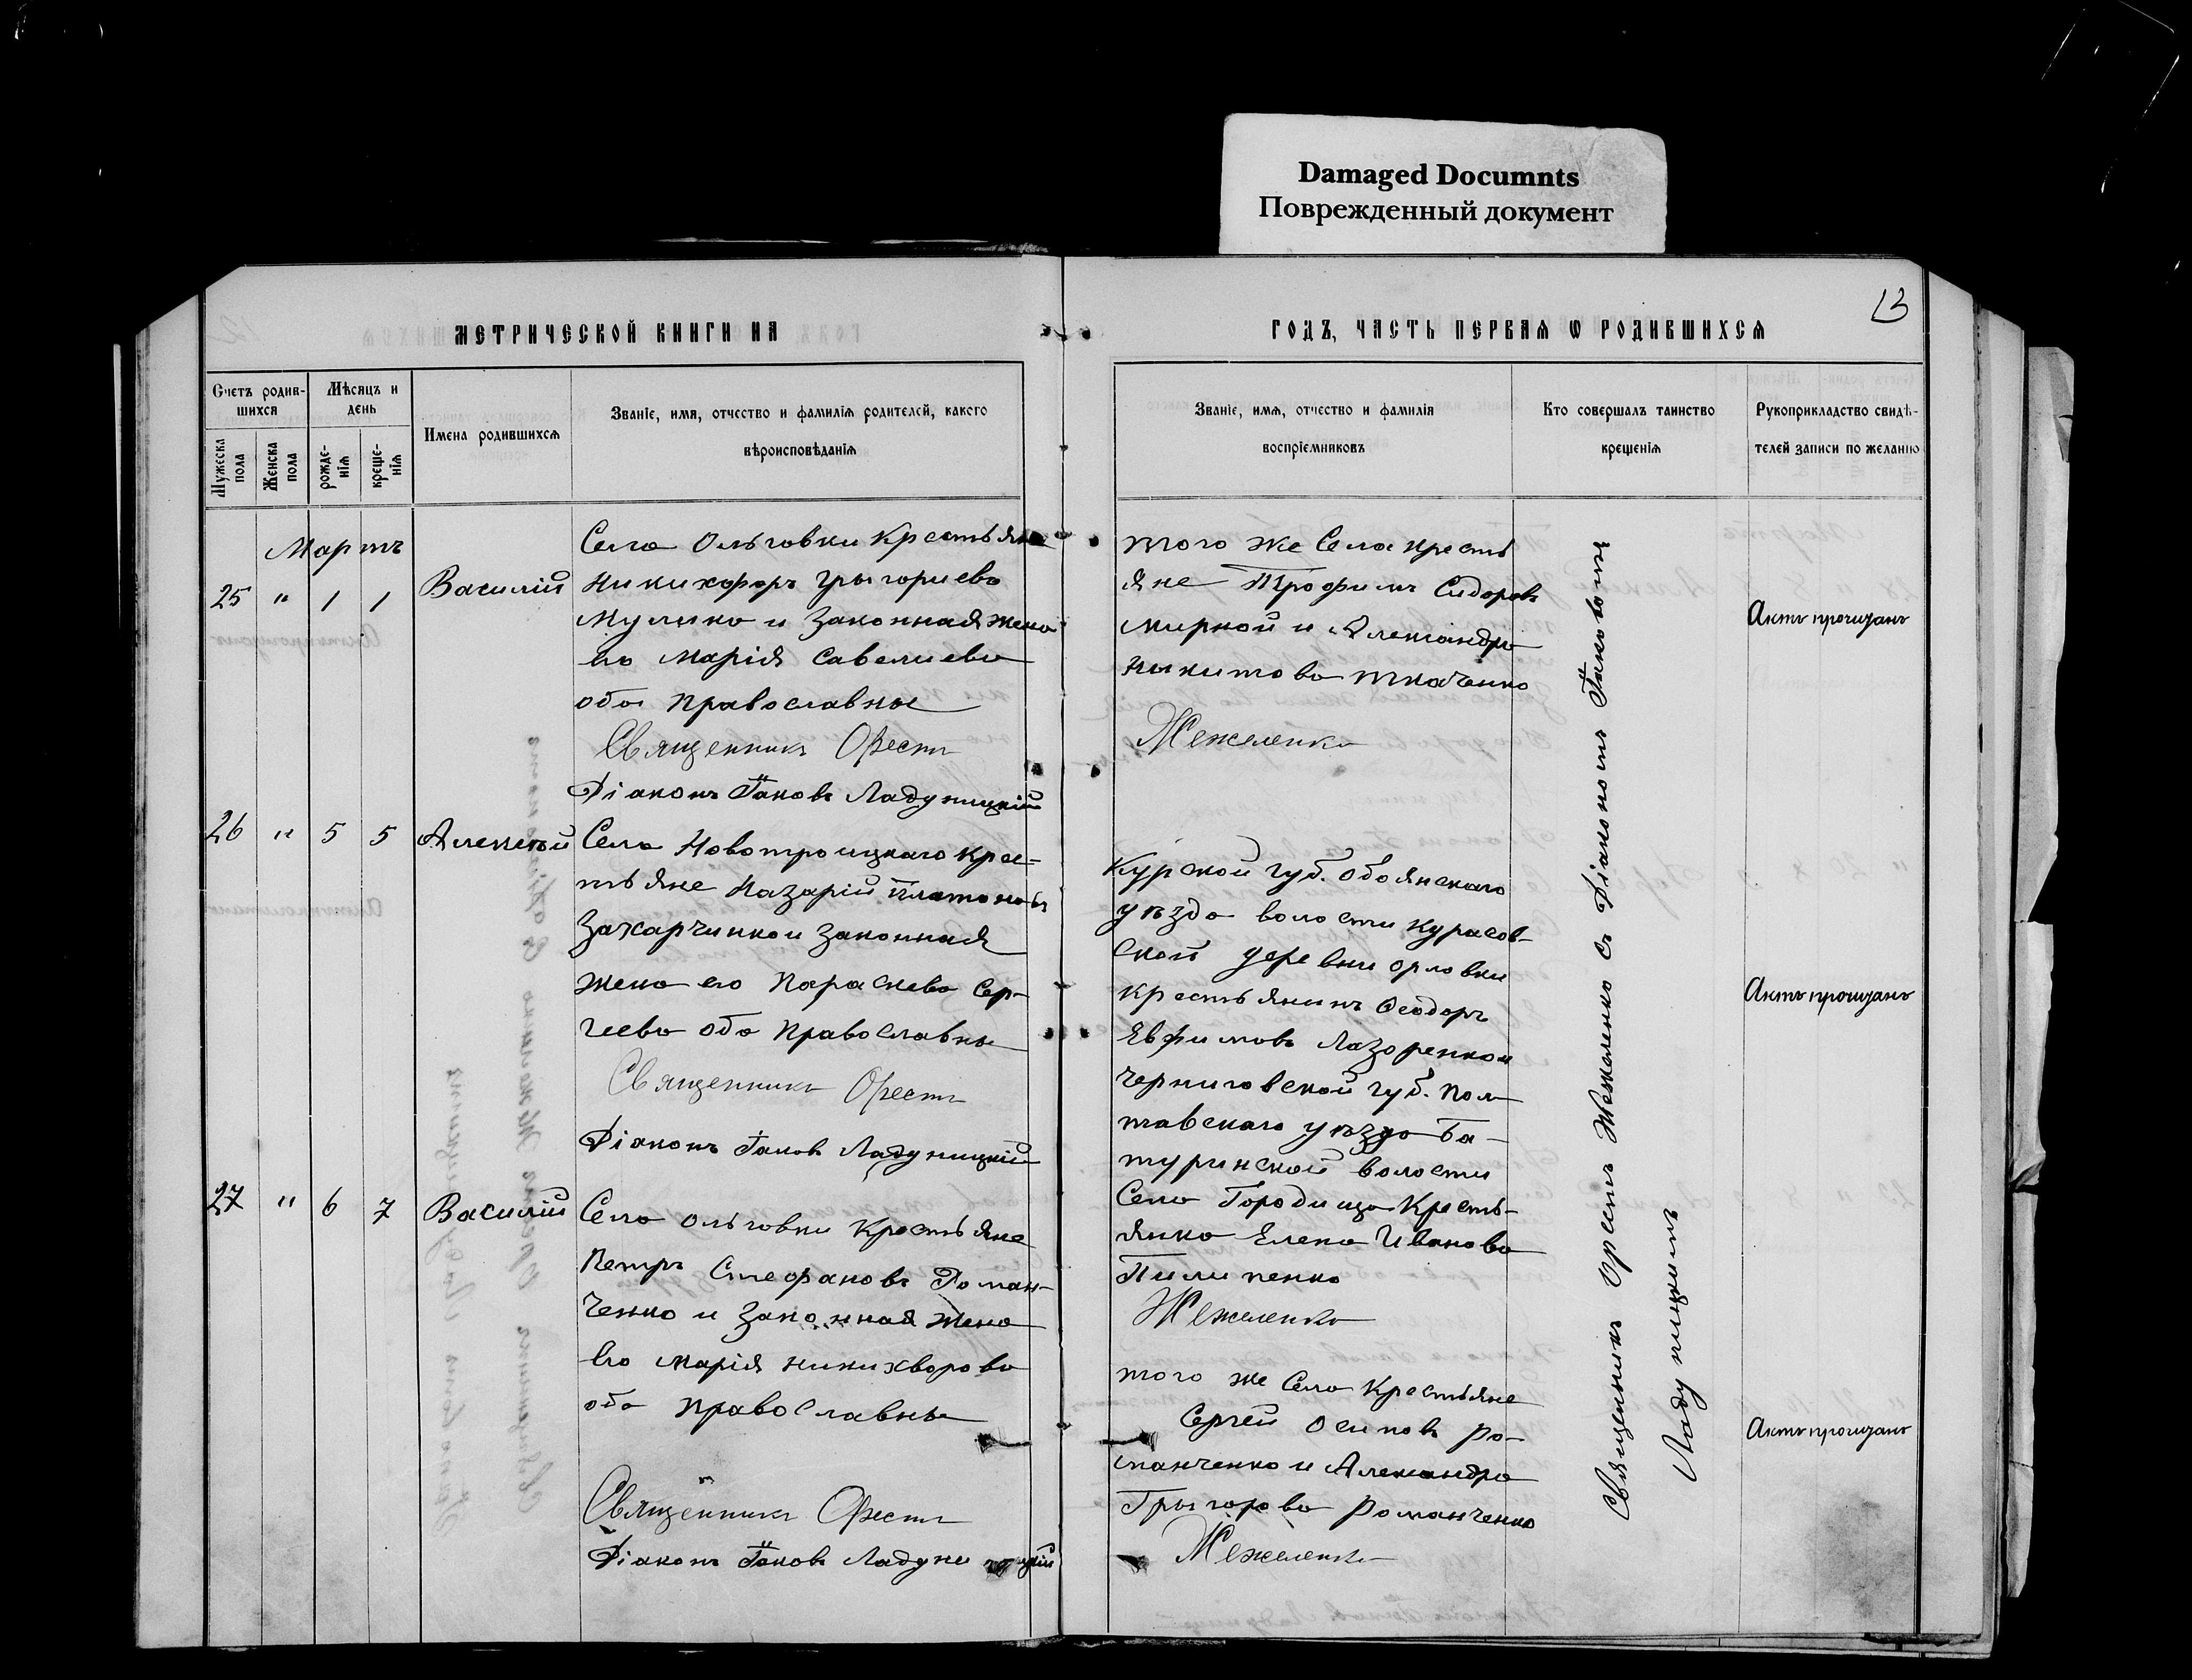 Damaged Documnts
Поврежденный документ
13
МЕТРИЧЕСКОЙ КНИГИ НА
ГОДЪ, ЧАСТЬ ПЕРВАЯ Ѡ РОДИВШИХСЯ
Счетъ родив-
шихся
Мужеска
пола
Женска
пола
Мѣсяцъ и
день
рожде-
нія
креще-
нія
Имена родившихся
Званіе, имя, отчество и фамилія родителей, какого
вѣроисповѣданія
Званіе, имя, отчество и фамилія
воспріемниковъ
Кто совершалъ таинство
крещенія
Рукоприкладство свидѣ-
телей записи по желанію
Мартъ
25 " 1 1
Василій
Села Ольговки Крестьяне
Никихфоръ Грыгориева
Мулика и Законная жена
его Марія Савелиева
оба Православны
Священникъ Орестъ
Діаконъ Іаковъ Ладуницкій
того же Села кресть
яне Трофимъ Сидоровъ
мирной и Александра
Ныкитова Ткаченко
Межеленко
Актъ прочиданъ
26 " 5 5
Алексѣй
Села Новотроицкаго Крес-
тьяне Назарій Платоновъ
Захарчинко и Законная
жена его Параскева Сер-
геева оба Православны
Священникъ Орестъ
Діаконъ Іаковъ Ладуницкій
Курской губ. Обоянскаго
уѣзда волости Курасов-
ской деревни орловки
крестьянинъ Феодоръ
Евфимовъ Лазоренко и
Черниговской губ. Пол-
тавскаго уѣзда Ба-
туринской волости
Села Городища Кресть-
янка Елена Иванова
Пилипенко
Межеленко
Актъ прочиданъ
27 " 6 7
Василій
Села Ольговки Крестьяне
Петръ Стефановъ Роман-
ченко и Законная жена
его Марія Никихворова
оба Православны
Священникъ Орестъ
Діаконъ Іаковъ Ладуницкій
того же Села Крестьяне
Сергей Осиповъ Ро-
манченко и Александра
Грыгорова Романченко
Межеленко
Актъ прочиданъ
Священникъ Орестъ Межеленко съ Діакономъ Іаковомъ
Ладуницкимъ